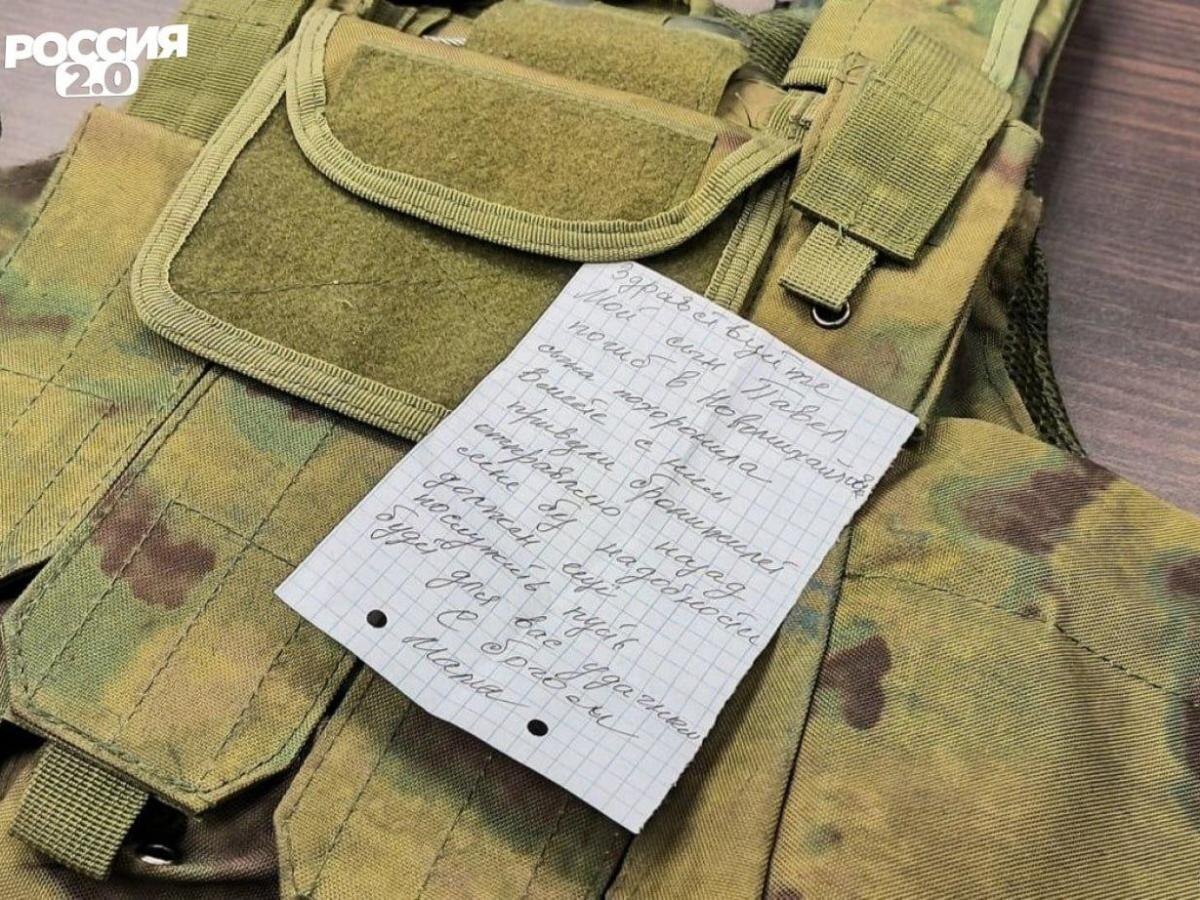 РОССИЯ
2.0
Здравствуйте
Мой сын Павел
погиб в Новомихайловк
сына похоронила
Вместе с ним
привезли бронижилет
отправляю назад
семье без надобности
должен ещё
послужить пусть
будет для вас удачным
С богом
Мама